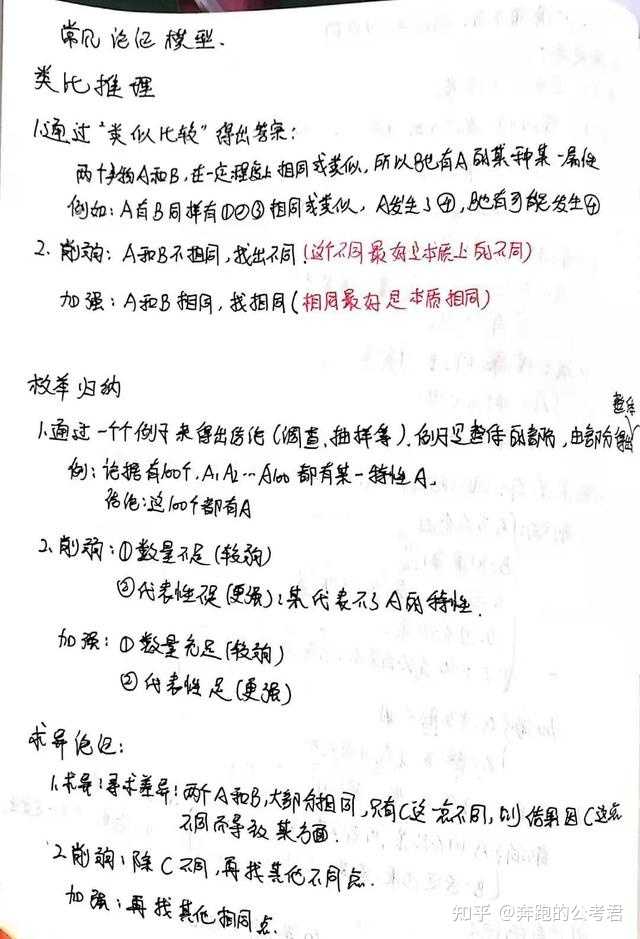 常见论证模型.
类比推理
1.通过"类似比较"得出答案:
两个事物A和B,在一定程度上相同或类似,所以B也有A的某种某一属性
例如:A有B同样有①②③相同或类似, A发生了④,B也有可能发生④
2.削弱:A和B不相同,找出不同(这个不同最好是本质上的不同)
加强:A和B相同,找相同(相同最好是本质相同)
枚举归纳
整体
1.通过一个个例子来得出结论(调查、抽样等).例子是整体的部分,由部分得出
例:论据有100个,A₁A₂…A₁₀₀都有某一特性A.
结论:这100个都有A
2.削弱:①数量不足(较弱)
②代表性不足(更强):某代表不了A的特性.
加强:①数量充足(较弱)
②代表性足(更强)
求异论证:
1.求异:寻求差异:两个A和B,大部分相同,只有C这一点不同,则结果因C这点
不同而导致某方面.
2.削弱:除C不同,再找其他不同点.
加强:再找其他相同点.
知乎 @奔跑的公考君